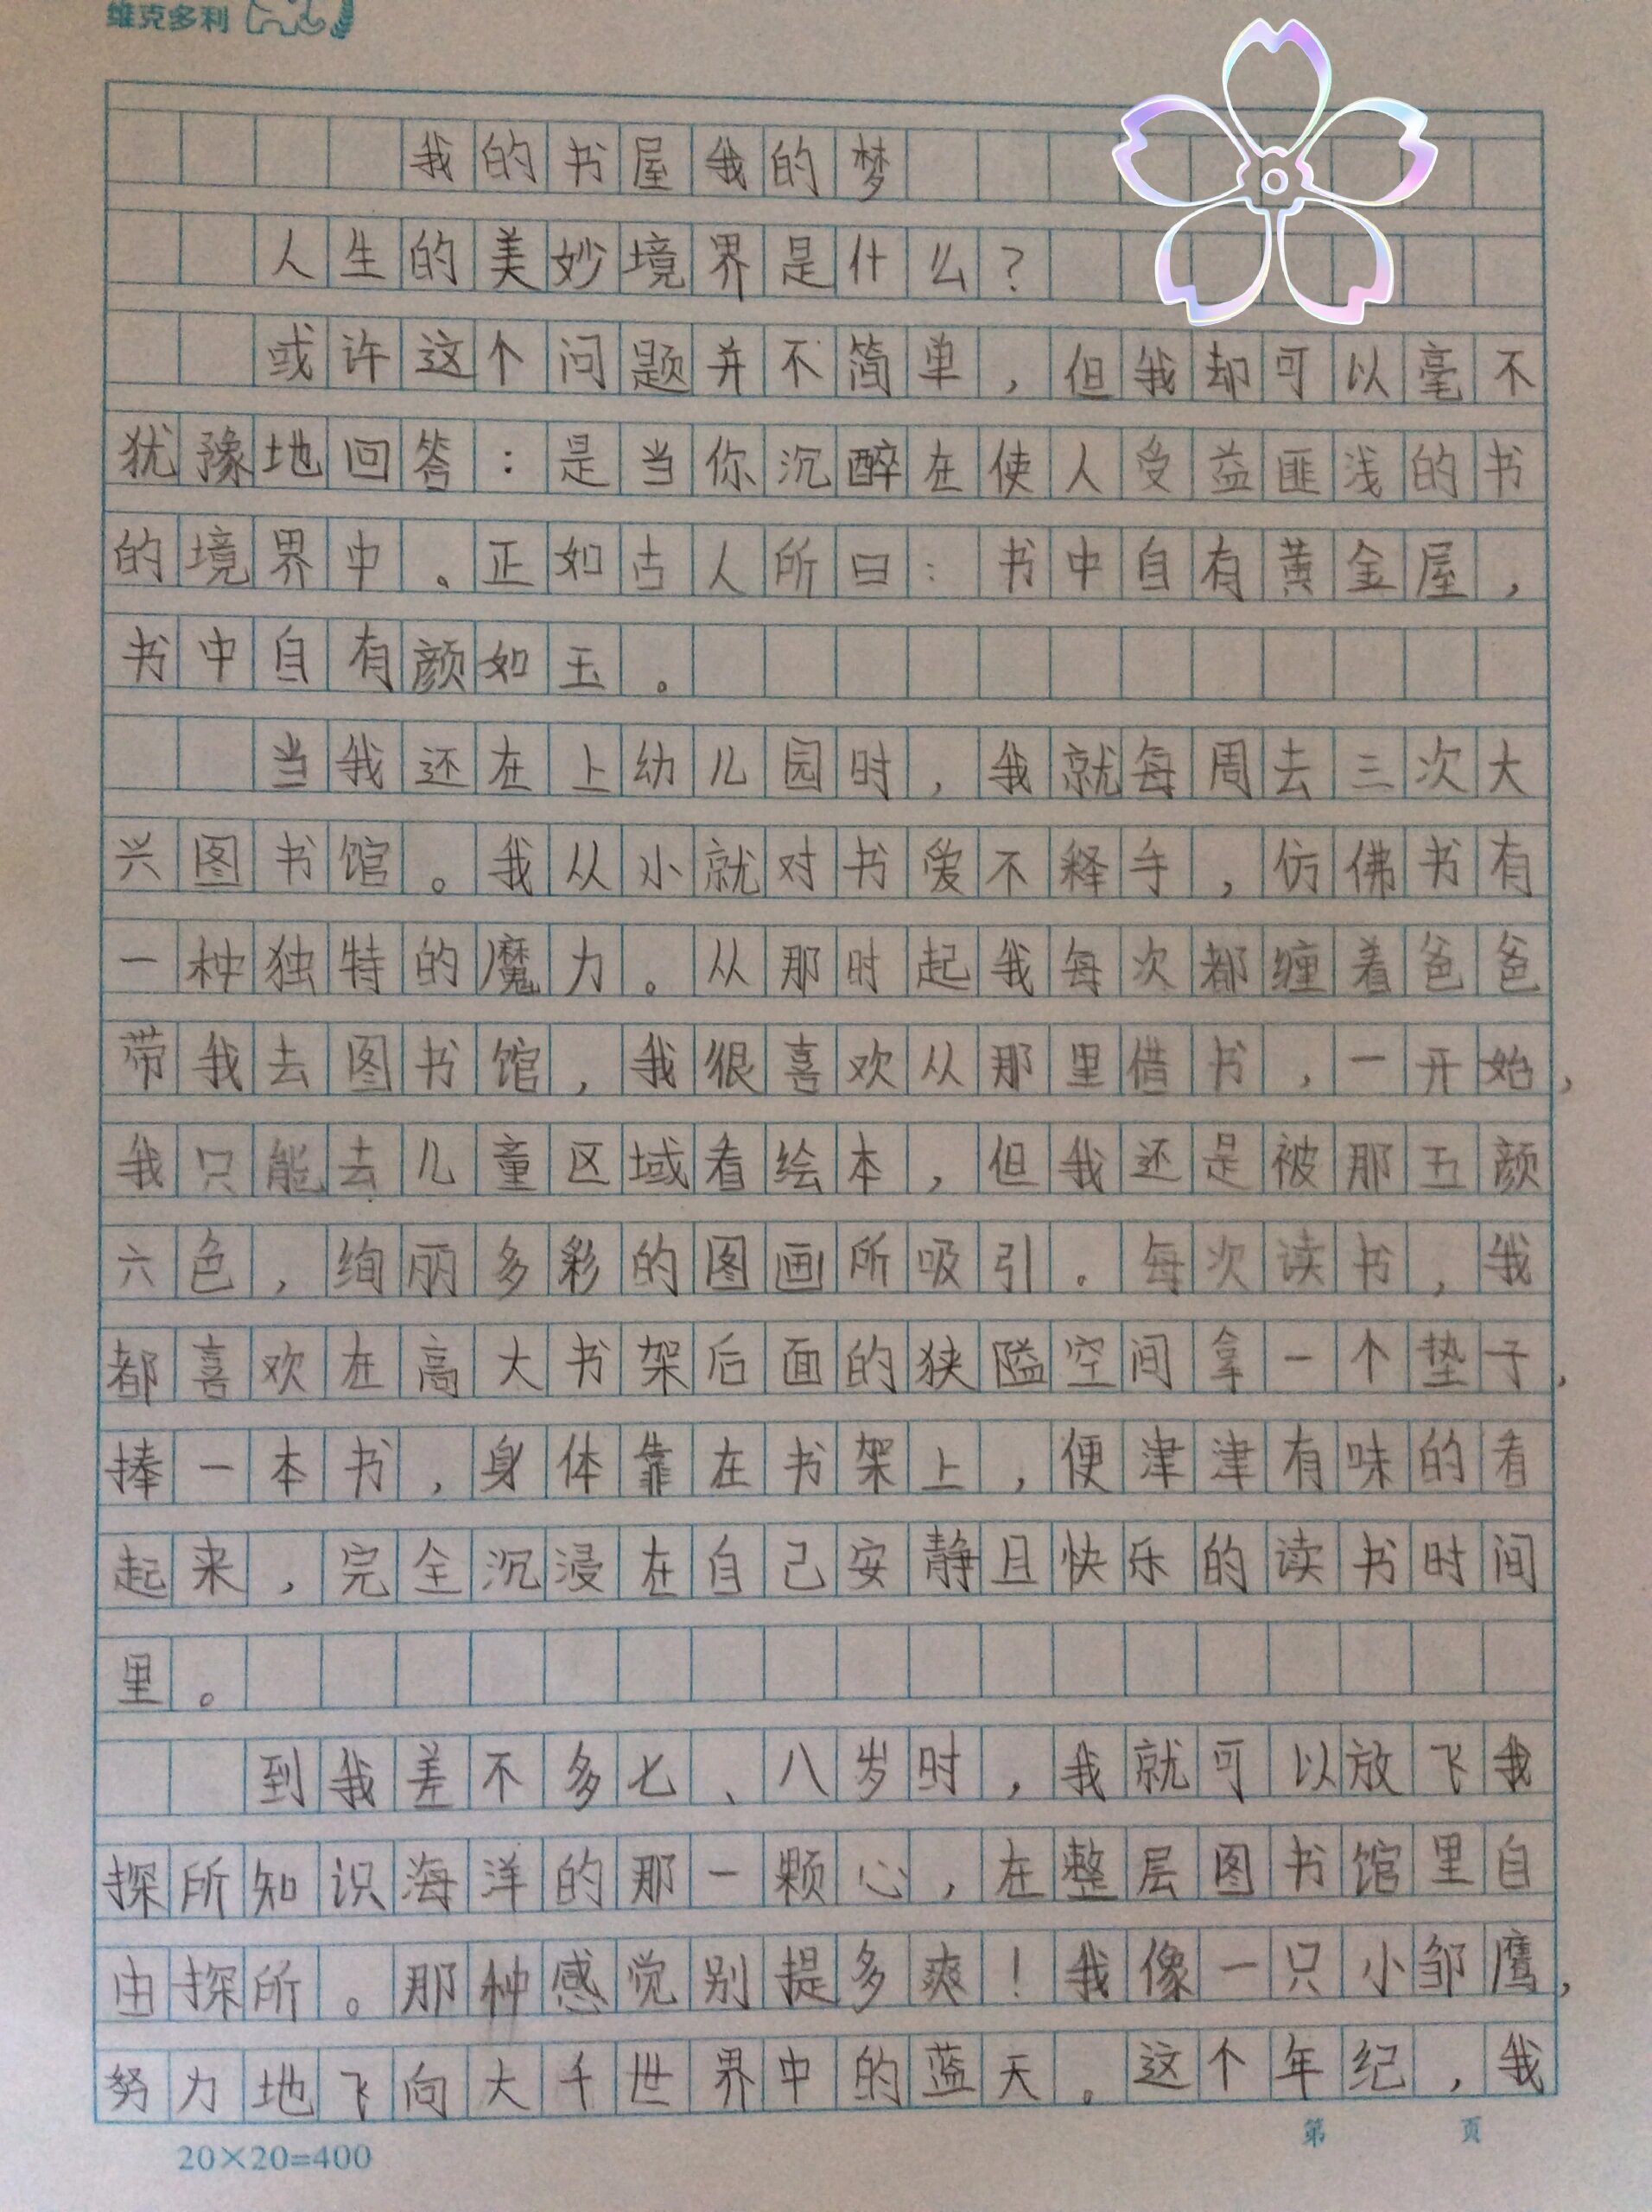 维克多利
我的书屋我的梦
人生的美妙境界是什么?
或许这个问题并不简单,但我却可以毫不
犹豫地回答:是当你沉醉在使人受益匪浅的书
的境界中。正如古人所曰:书中自有黄金屋,
书中自有颜如玉。
当我还在上幼儿园时,我就每周去三次大
兴图书馆。我从小就对书爱不释手,仿佛书有
一种独特的魔力。从那时起我每次都缠着爸爸
带我去图书馆,我很喜欢从那里借书,一开始,
我只能去儿童区域看绘本,但我还是被那五颜
六色,绚丽多彩的图画所吸引。每次读书,我
都喜欢在高大书架后面的狭隘空间拿一个垫子,
捧一本书,身体靠在书架上,便津津有味的看
起来,完全沉浸在自己安静且快乐的读书时间
里。
到我差不多七、八岁时,我就可以放飞我
探所知识海洋的那一颗心,在整层图书馆里自
由探所。那种感觉别提多爽!我像一只小邹鹰,
努力地飞向大千世界中的蓝天。这个年纪,我
20×20=400
第 页